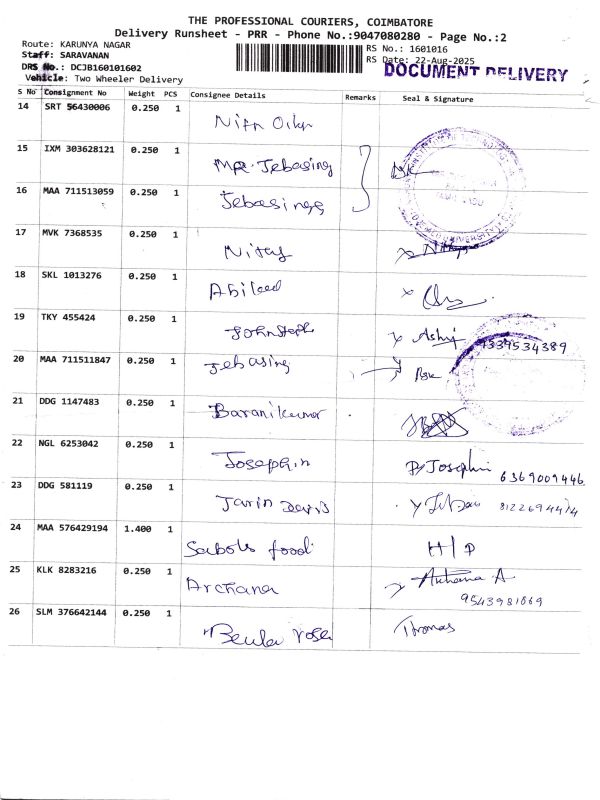 THE PROFESSIONAL COURIERS, COIMBATORE
Delivery Runsheet - PRR - Phone No.:9047080280 - Page No.:2
Route: KARUNYA NAGAR
RS No.: 1601016
Staff: SARAVANAN
RS Date: 22-Aug-2025
DRS No.: DCJB160101602
DOCUMENT DELIVERY
Vehicle: Two Wheeler Delivery
S No Consignment No Weight PCS Consignee Details Remarks Seal & Signature
14 SRT 56430006 0.250 1
15 IXM 303628121 0.250 1 Jebasing
16 MAA 711513059 0.250 1 Jebasings
17 MVK 7368535 0.250 1
18 SKL 1013276 0.250 1
19 TKY 455424 0.250 1 9339534389
20 MAA 711511847 0.250 1 Jebasing
21 DDG 1147483 0.250 1 Baranikumar
22 NGL 6253042 0.250 1 Josephin 6369009446
23 DDG 581119 0.250 1
24 MAA 576429194 1.400 1 food
25 KLK 8283216 0.250 1 Archana Archana A
9543981669
26 SLM 376642144 0.250 1 Beula rose Thomas